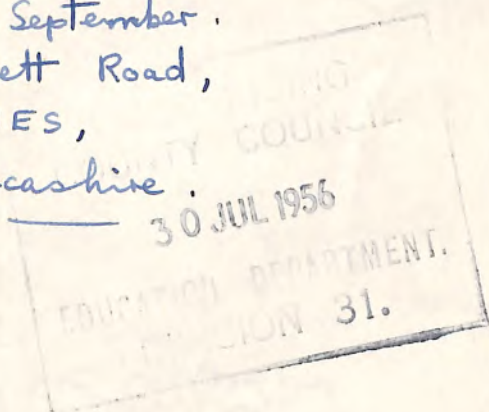 September.
ett Road,
ES,
cashire.
COUNCIL
30 JUL 1956
EDUCATION DEPARTMENT.
31.